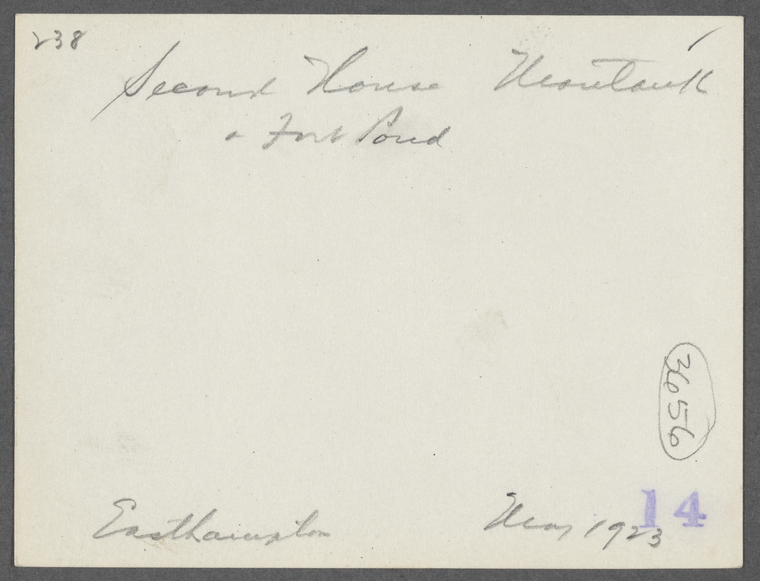 238
Second House Montauk
& Fort Pond
3656
14
Easthampton May 1923